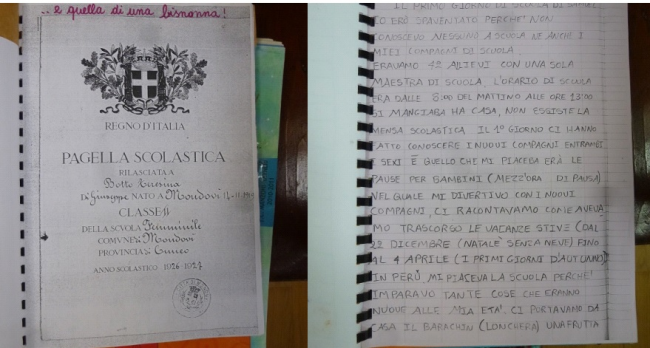 ...e quella di una bisnonna!
REGNO D'ITALIA
PAGELLA SCOLASTICA
RILASCIATA A
Teresina
Di Giuseppe NATO A Mondovì
CLASSE II
DELLA SCVOLA Femminile
COMVNE: Mondovì
PROVINCIA: Cuneo
ANNO SCOLASTICO 1926-1927
IL PRIMO GIORNO DI SCUOLA
IO ERO SPAVENTATO PERCHE' NON
CONOSCEVO NESSUNO A SCUOLA NE ANCHE I
MIEI COMPAGNI DI SCUOLA
ERAVAMO ALLIEVI CON UNA SOLA
MAESTRA DI SCUOLA. L'ORARIO DI SCUOLA
ERA DALLE 8:00 DEL MATTINO ALLE ORE 13:00
SI MANGIABA HA CASA, NON ESSISTE LA
MENSA SCOLASTICA IL 1° GIORNO CI HANNO
FATTO CONOSCERE I NUOVI COMPAGNI ENTRAMBI
I SEXI E QUELLO CHE MI PIACEBA ERA LE
PAUSE PER BAMBINI (MEZZ'ORA DI PAUSA)
NEL QUALE MI DIVERTIVO CON I NUOVI
COMPAGNI, CI RACONTAVAMO COME AVEVA
MO TRASCORGO LE VACANZE STIVE (DAL
22 DICEMBRE (NATALE SENZA NEVE) FINO
AL 4 APRILE (I PRIMI GIORNI D'AUTUNNO)
IN PERÙ MI PIACEVA LA SCUOLA PERCHE'
IMPARAVO TANTE COSE CHE ERANNO
NUOVE ALLE MIA ETA'. CI PORTAVAMO DA
CASA IL BARACHIN (LONCHERA) UNA FRUTTA